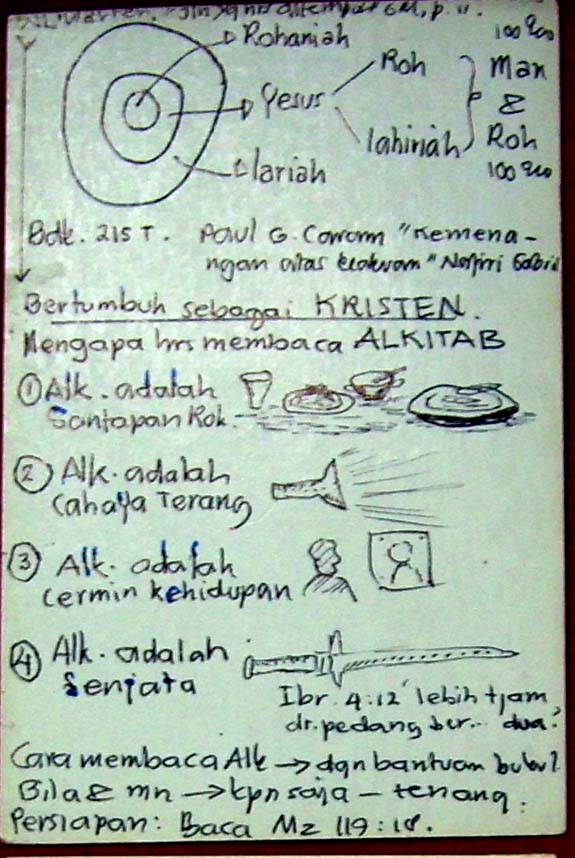 100 %
Rohaniah
Yesus
Roh
lahiriah
Man
&
Roh
100 %
lariah
Bdk. 215 T. Paul G. "Kemena-
ngan atas
Bertumbuh sebagai KRISTEN.
Mengapa hrs membaca ALKITAB
① Alk. adalah
Santapan Roh.
② Alk. adalah
Cahaya Terang
③ Alk. adalah
cermin kehidupan
④ Alk. adalah
Senjata
Ibr. 4:12 lebih tjam
dr. pedang ber... dua?
Cara membaca Alk → dgn bantuan
Bila & mn → kpn saja - tenang.
Persiapan: Baca Mz 119:18.